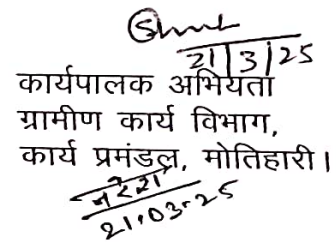 21/3/25
कार्यपालक अभियंता
ग्रामीण कार्य विभाग,
कार्य प्रमंडल, मोतिहारी।
नरेश
21.03.25